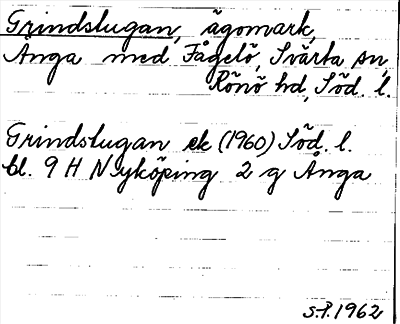 Grindslugan, ägomark,
Ånga med Fågelö, Svärta sn,
Rönö hd, Söd. l.
Grindslugan ek (1960) Söd. l.
bl. 9 H Nyköping 2 g Ånga
S.P. 1962